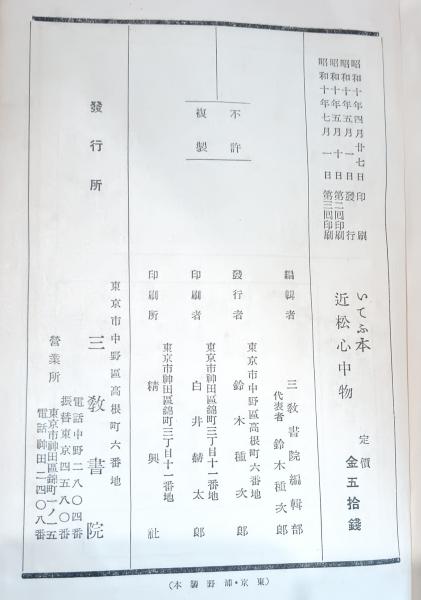 昭和十年四月廿七日 印刷
昭和十年五月一日 發行
昭和十年五月十日 第二回印刷
昭和十年七月一日 第三回印刷
いてふ本
近松心中物
定價
金五拾錢
不許
複製
編輯者 三教書院編輯部
代表者 鈴木種次郎
東京市中野區高根町六番地
發行者 鈴木種次郎
東京市神田區錦町三丁目十一番地
印刷者 白井赫太郎
東京市神田區錦町三丁目十一番地
印刷所 精興社
發行所
東京市中野區高根町六番地
三教書院
電話中野二八〇四番
振替東京四五八〇番
營業所
東京市神田區錦町一ノ一五
電話神田二四〇八番
(東京・浦野製本)